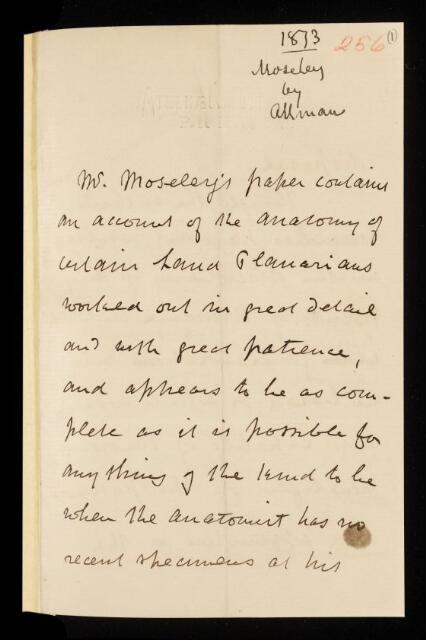 1873 256 (1)
Moseley
by
Allman
Mr. Moseley's paper contains
an account of the anatomy of
certain Land Planarians
worked out in great detail
and with great patience,
and appears to be as com-
plete as it is possible for
anything of the kind to be
when the anatomist has no
recent specimens at his